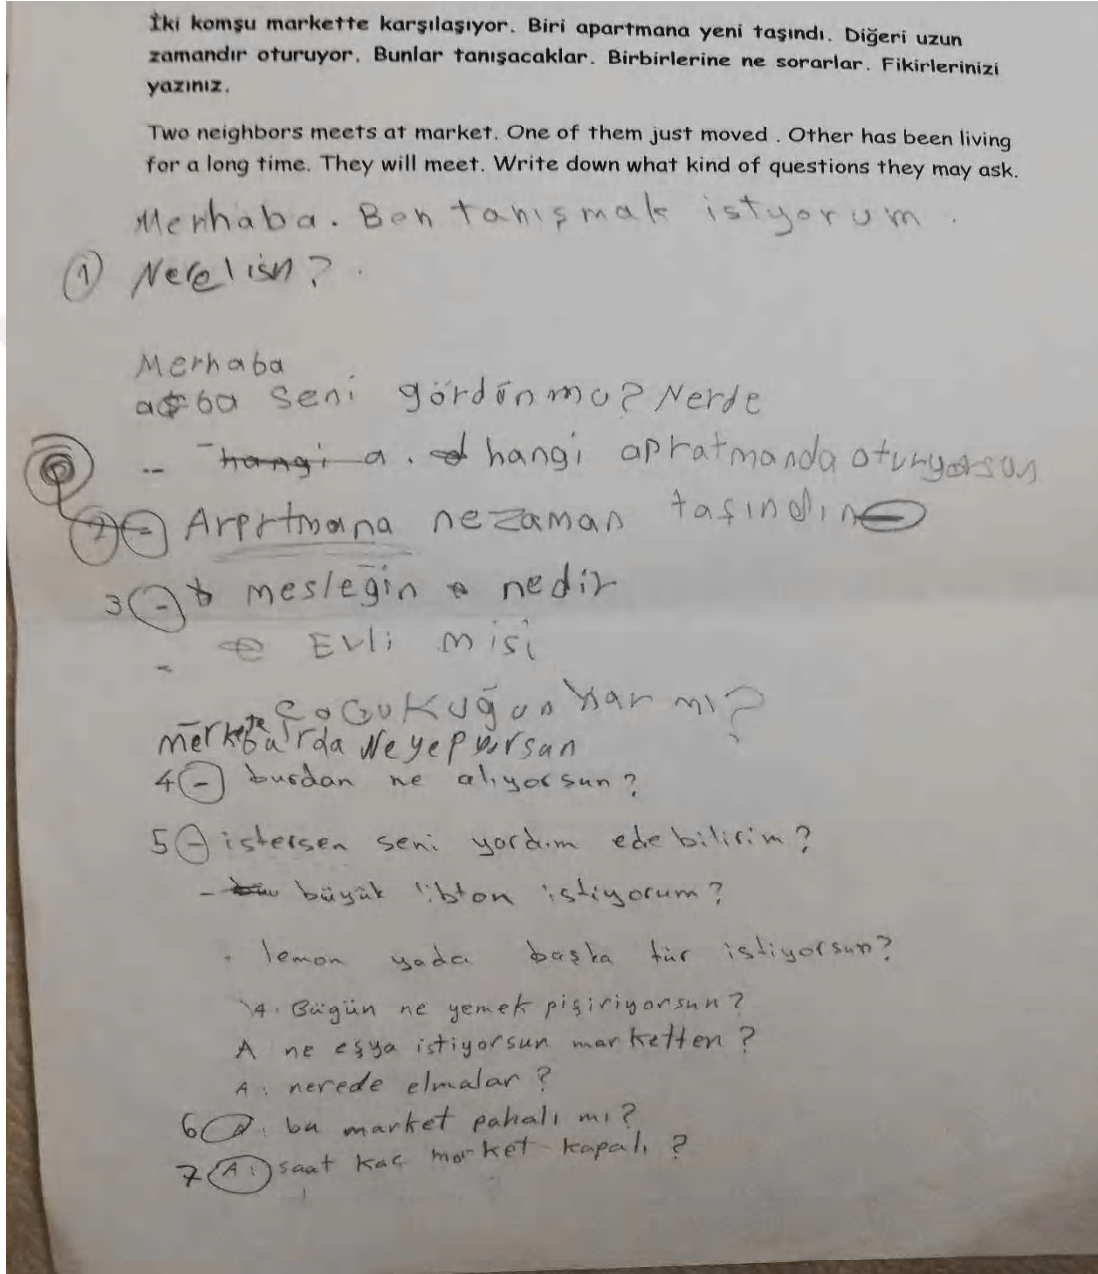 İki komşu markette karşılaşıyor. Biri apartmana yeni taşındı. Diğeri uzun
zamandır oturuyor. Bunlar tanışacaklar. Birbirlerine ne sorarlar. Fikirlerinizi
yazınız.
Two neighbors meets at market. One of them just moved . Other has been living
for a long time. They will meet. Write down what kind of questions they may ask.
Merhaba. Ben tanışmak istyorum.
1 Nerelisn?
Merhaba
seni gördün mu? Nerde
-- hangi a. hangi apratmanda oturyorsun
2 - Arprtmana nezaman taşındın
3 - mesleğin nedir
- Evli misi
Çocukuğun var mı?
Ne yepyorsan
4 - burdan ne alıyorsun?
5 - istersen seni yardım edebilirim?
- büyük libton istiyorum?
- lemon yada başka tür istiyorsun?
A. Bügün ne yemek pişiriyorsun?
A ne eşya istiyorsun marketten?
A: nerede elmalar?
6 bu market pahalı mı?
7 A: saat kaç market kapalı?